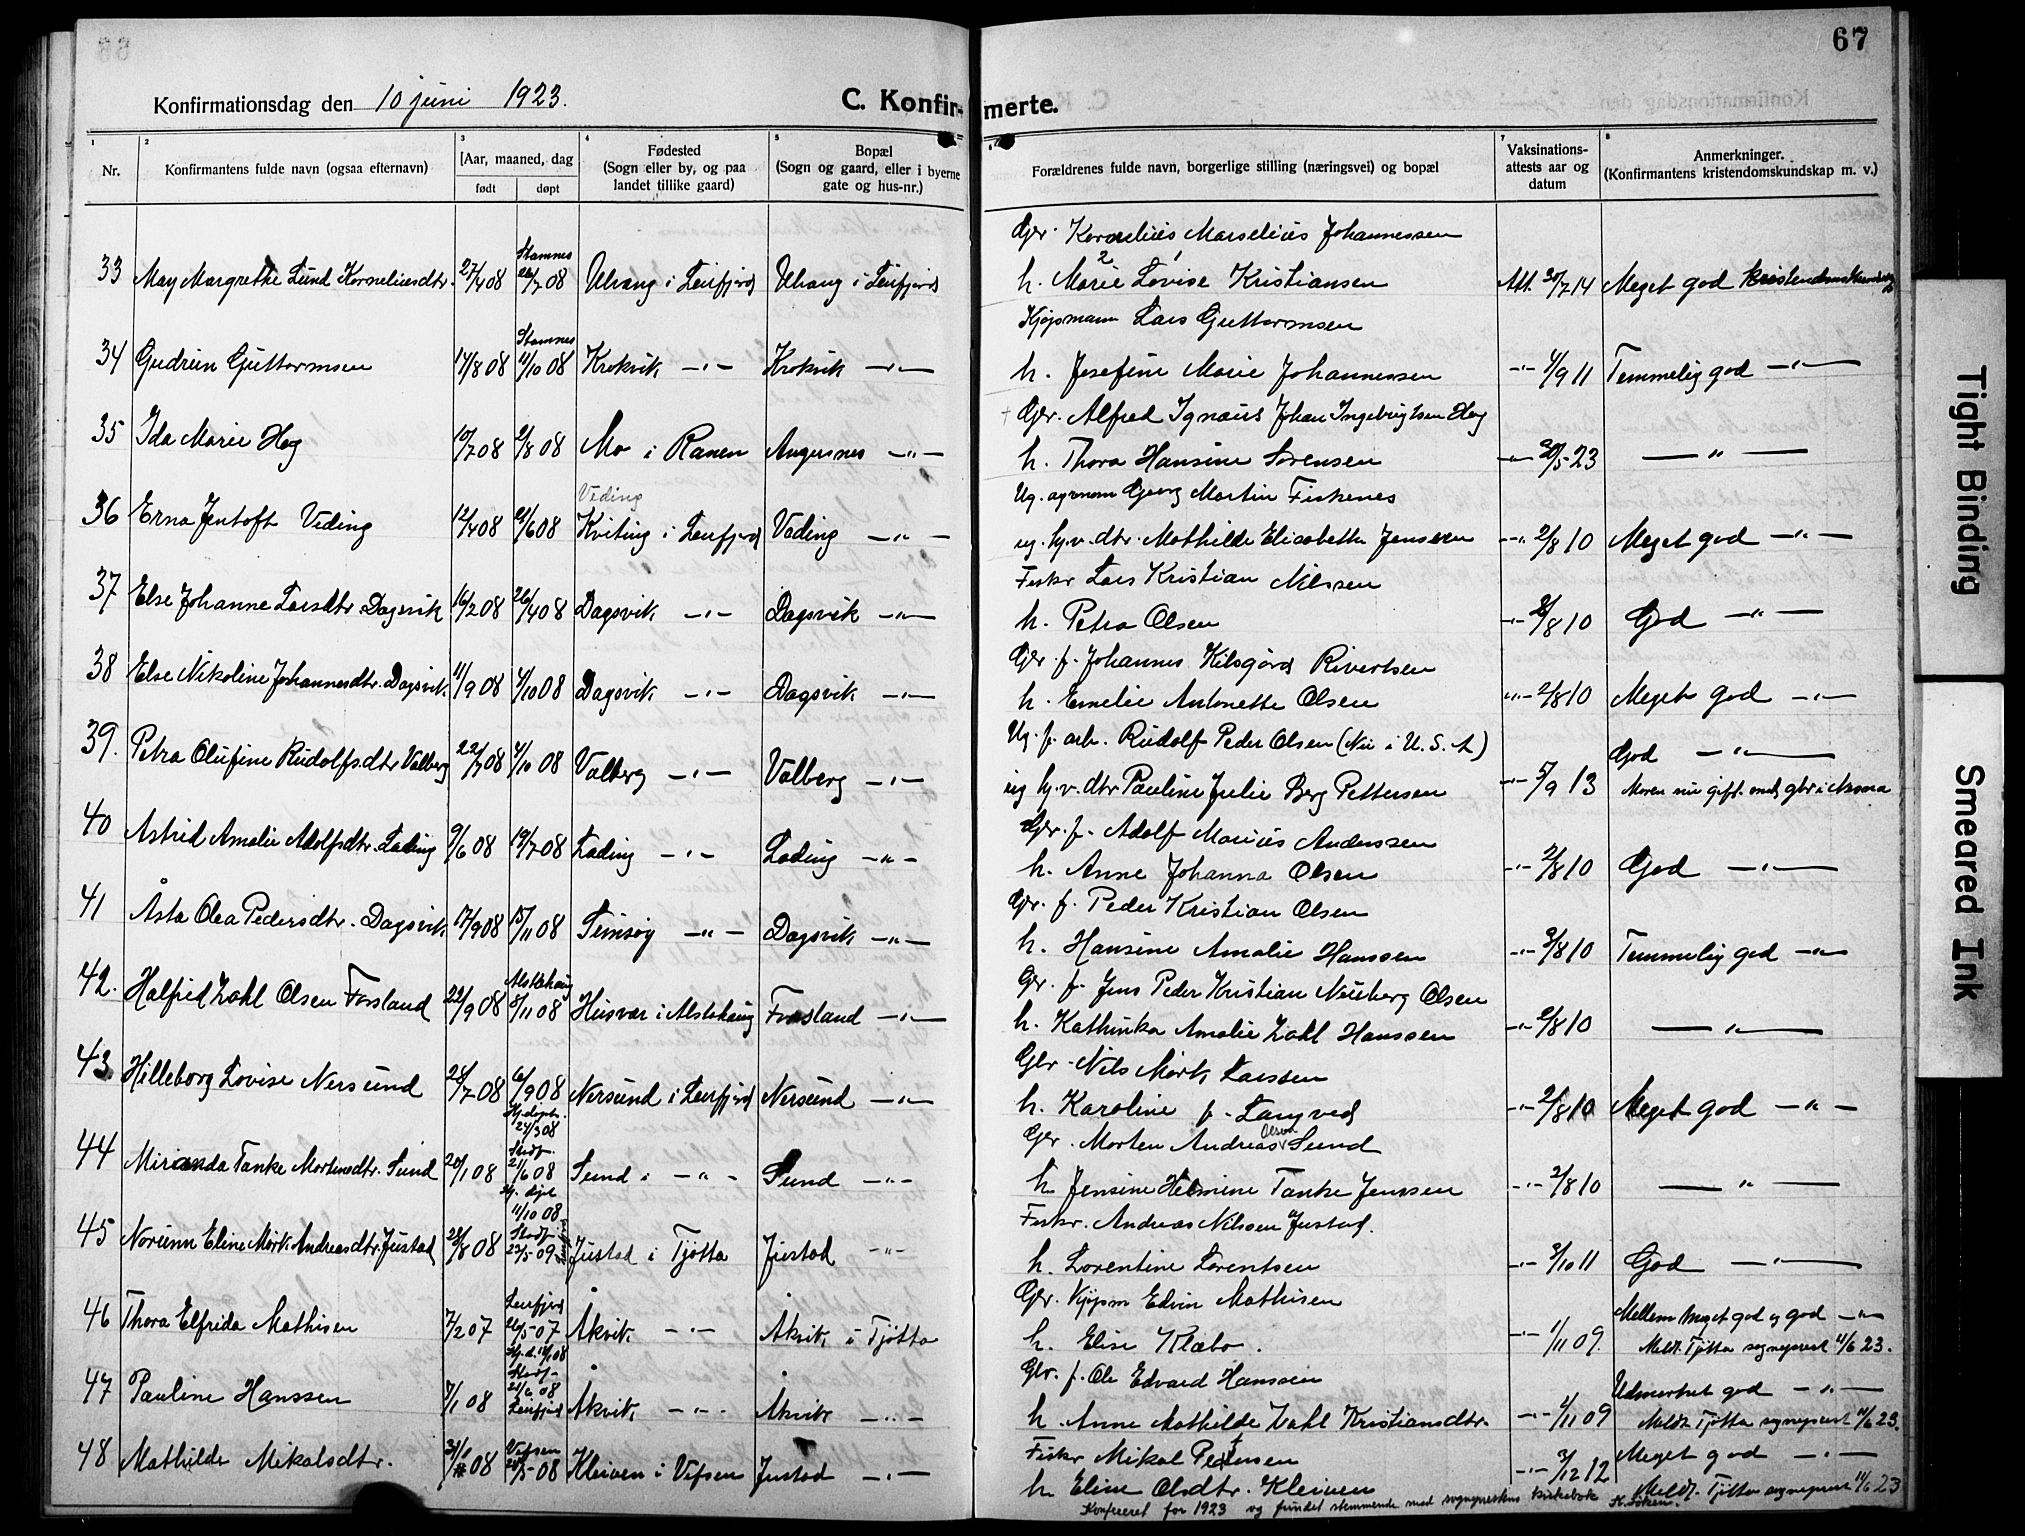 67
Konfirmationsdag den 10 juni 1923.
C. Konfir-
merte.
1 2 3 4 5 7 8
Nr.
Konfirmantens fulde navn (ogsaa efternavn)
Aar, maaned, dag
født døpt
Fødested
(Sogn eller by, og paa
landet tillike gaard)
Bopæl
(Sogn og gaard, eller i byerne
gate og hus-nr.)
Forældrenes fulde navn, borgerlige stilling (næringsvei) og bopæl
Vaksinations-
attests aar og
datum
Anmerkninger.
(Konfirmantens kristendomskundskap m. v.)
Gbr. Kornelius Marselius Johannessen
Stamnes
33 May Margrethe Lund Korneliusdtr. 27/4 08 26/7 08 Ulvang i Leirfjord Ulvang i Leirfjord h. Marie Lovise Kristiansen Att. 30/7 14 Meget god kristendomskundskap
Kjøpmann Lars Guttormsen
Stamnes
34 Gudrun Guttormsen 17/8 08 11/10 08 Krokvik -"- Krokvik -"- h. Josefine Marie Johannessen -"- 4/9 11 Temmelig god -"-
Gbr. Alfred Ignaus Johan Ingebrigtsen Hog
35 Ida Marie Hog 10/7 08 2/8 08 Mo i Ranen Angersnes -"- h. Thora Hansine Sørensen -"- 30/5 23 -"-
Ug. agronom Georg Martin Fiskenes
Veding
36 Erna Jentoft Veding 12/4 08 21/6 08 Kviting i Leirfjord Veding -"- ug. hj.v. dtr. Mathilde Elisabeth Jenssen -"- 2/8 10 Meget god -"-
Fisker Lars Kristian Nilssen
37 Else Johanne Larsdtr. Dagsvik 16/2 08 26/4 08 Dagsvik -"- Dagsvik -"- h. Petra Olsen -"- 2/8 10 God -"-
Gbr. f. Johannes Kilsgård Rivertsen
38 Else Nikoline Johannesdtr. Dagsvik 11/9 08 4/10 08 Dagsvik -"- Dagsvik -"- h. Emelie Antonette Olsen -"- 2/8 10 Meget god -"-
Ug. f. arb. Rudolf Peder Olsen (Nu i U. S. A)
God -"-
39. Petra Olufine Rudolfsdtr. Valberg 22/7 08 4/10 08 Valberg -"- Valberg -"- ug hj. v. dtr Pauline Julie Berg Pettersen -"- 5/9 13 Moren nu gift med gbr i Nesna
Gbr. f. Adolf Marius Anderssen
40 Astrid Amalie Adolfsdtr. Lading 9/6 08 19/7 08 Lading -"- Lading -"- h. Anne Johanna Olsen -"- 2/8 10 God -"-
Gbr. f. Peder Kristian Olsen
41 Åsta Olea Pedersdtr. Dagsvik 17/9 08 15/11 08 Simsøy -"- Dagsvik -"- h. Hansine Amalie Hanssen -"- 3/8 10 Temmelig god -"-
Gbr. f. Jens Peder Kristian Neuberg Olsen
Alstahaug
42. Halfrid Zahl Olsen Forsland 22/9 08 8/11 08 Husvær i Alstahaug Forsland -"- h. Kathinka Amalie Zahl Hanssen -"- 2/8 10 -"-
Gbr Nils Mørk Larssen
43. Hilleborg Lovise Nersund 28/7 08 6/9 08 Nersund i Leirfjord Nersund -"- h. Karoline f. Langved -"- 2/8 10 Meget god -"-
Hj. døpt. 24/3 08
Gbr. Morten Andreas Olsen Sund
Stadf.
44 Miranda Tanke Mortensdtr. Sund 20/1 08 21/6 08 Sund i -"- Sund -"- h. Jensine Helmine Tanke Jenssen -"- 2/8 10 -"-
Hj. døpt 11/10 08
Fisker. Andreas Nilssen Justad.
Stadf.
45 Norunn Eline Mørk Andreasdtr. Justad 28/8 08 23/5 09 Justad i Tjøtta Justad -"- h. Lorentine Lorentsen -"- 3/10 11 God -"-
Gbr. Kjøpm Edvin Mathisen
Leirfjord
Mellem meget god og god -"-
46 Thora Elfrida Mathisen 7/2 07 26/5 07 Åkvik -"- Åkvik i Tjøtta h. Elise Klæbo. -"- 1/11 09. Meldt. Tjøtta sogneprest 11/6 23.
Gbr. f. Ole Edvard Hanssen
Stadf.
Udmerket god -"-
47 Pauline Hanssen 7/1 08 21/6 08 Leirfjord Åkvik -"- Åkvik -"- h. Anne Mathilde Zahl Kristiansdtr. -"- 1/11 09 Meldt. Tjøtta sogneprest 11/6 23.
Fisker Mikal Pedersen
Vefsen
Meget god -"-
48 Mathilde Mikalsdtr. 31/1 08 /5 08 Kleiven i Vefsen Justad -"- h. Eline Olsdtr. Kleiven -"- 3/12 12 Meldt. Tjøtta sogneprest 11/6 23
Konfereret for 1923 og fundet stemmende med sogneprestens kirkebok
Tight Binding
Smeared Ink